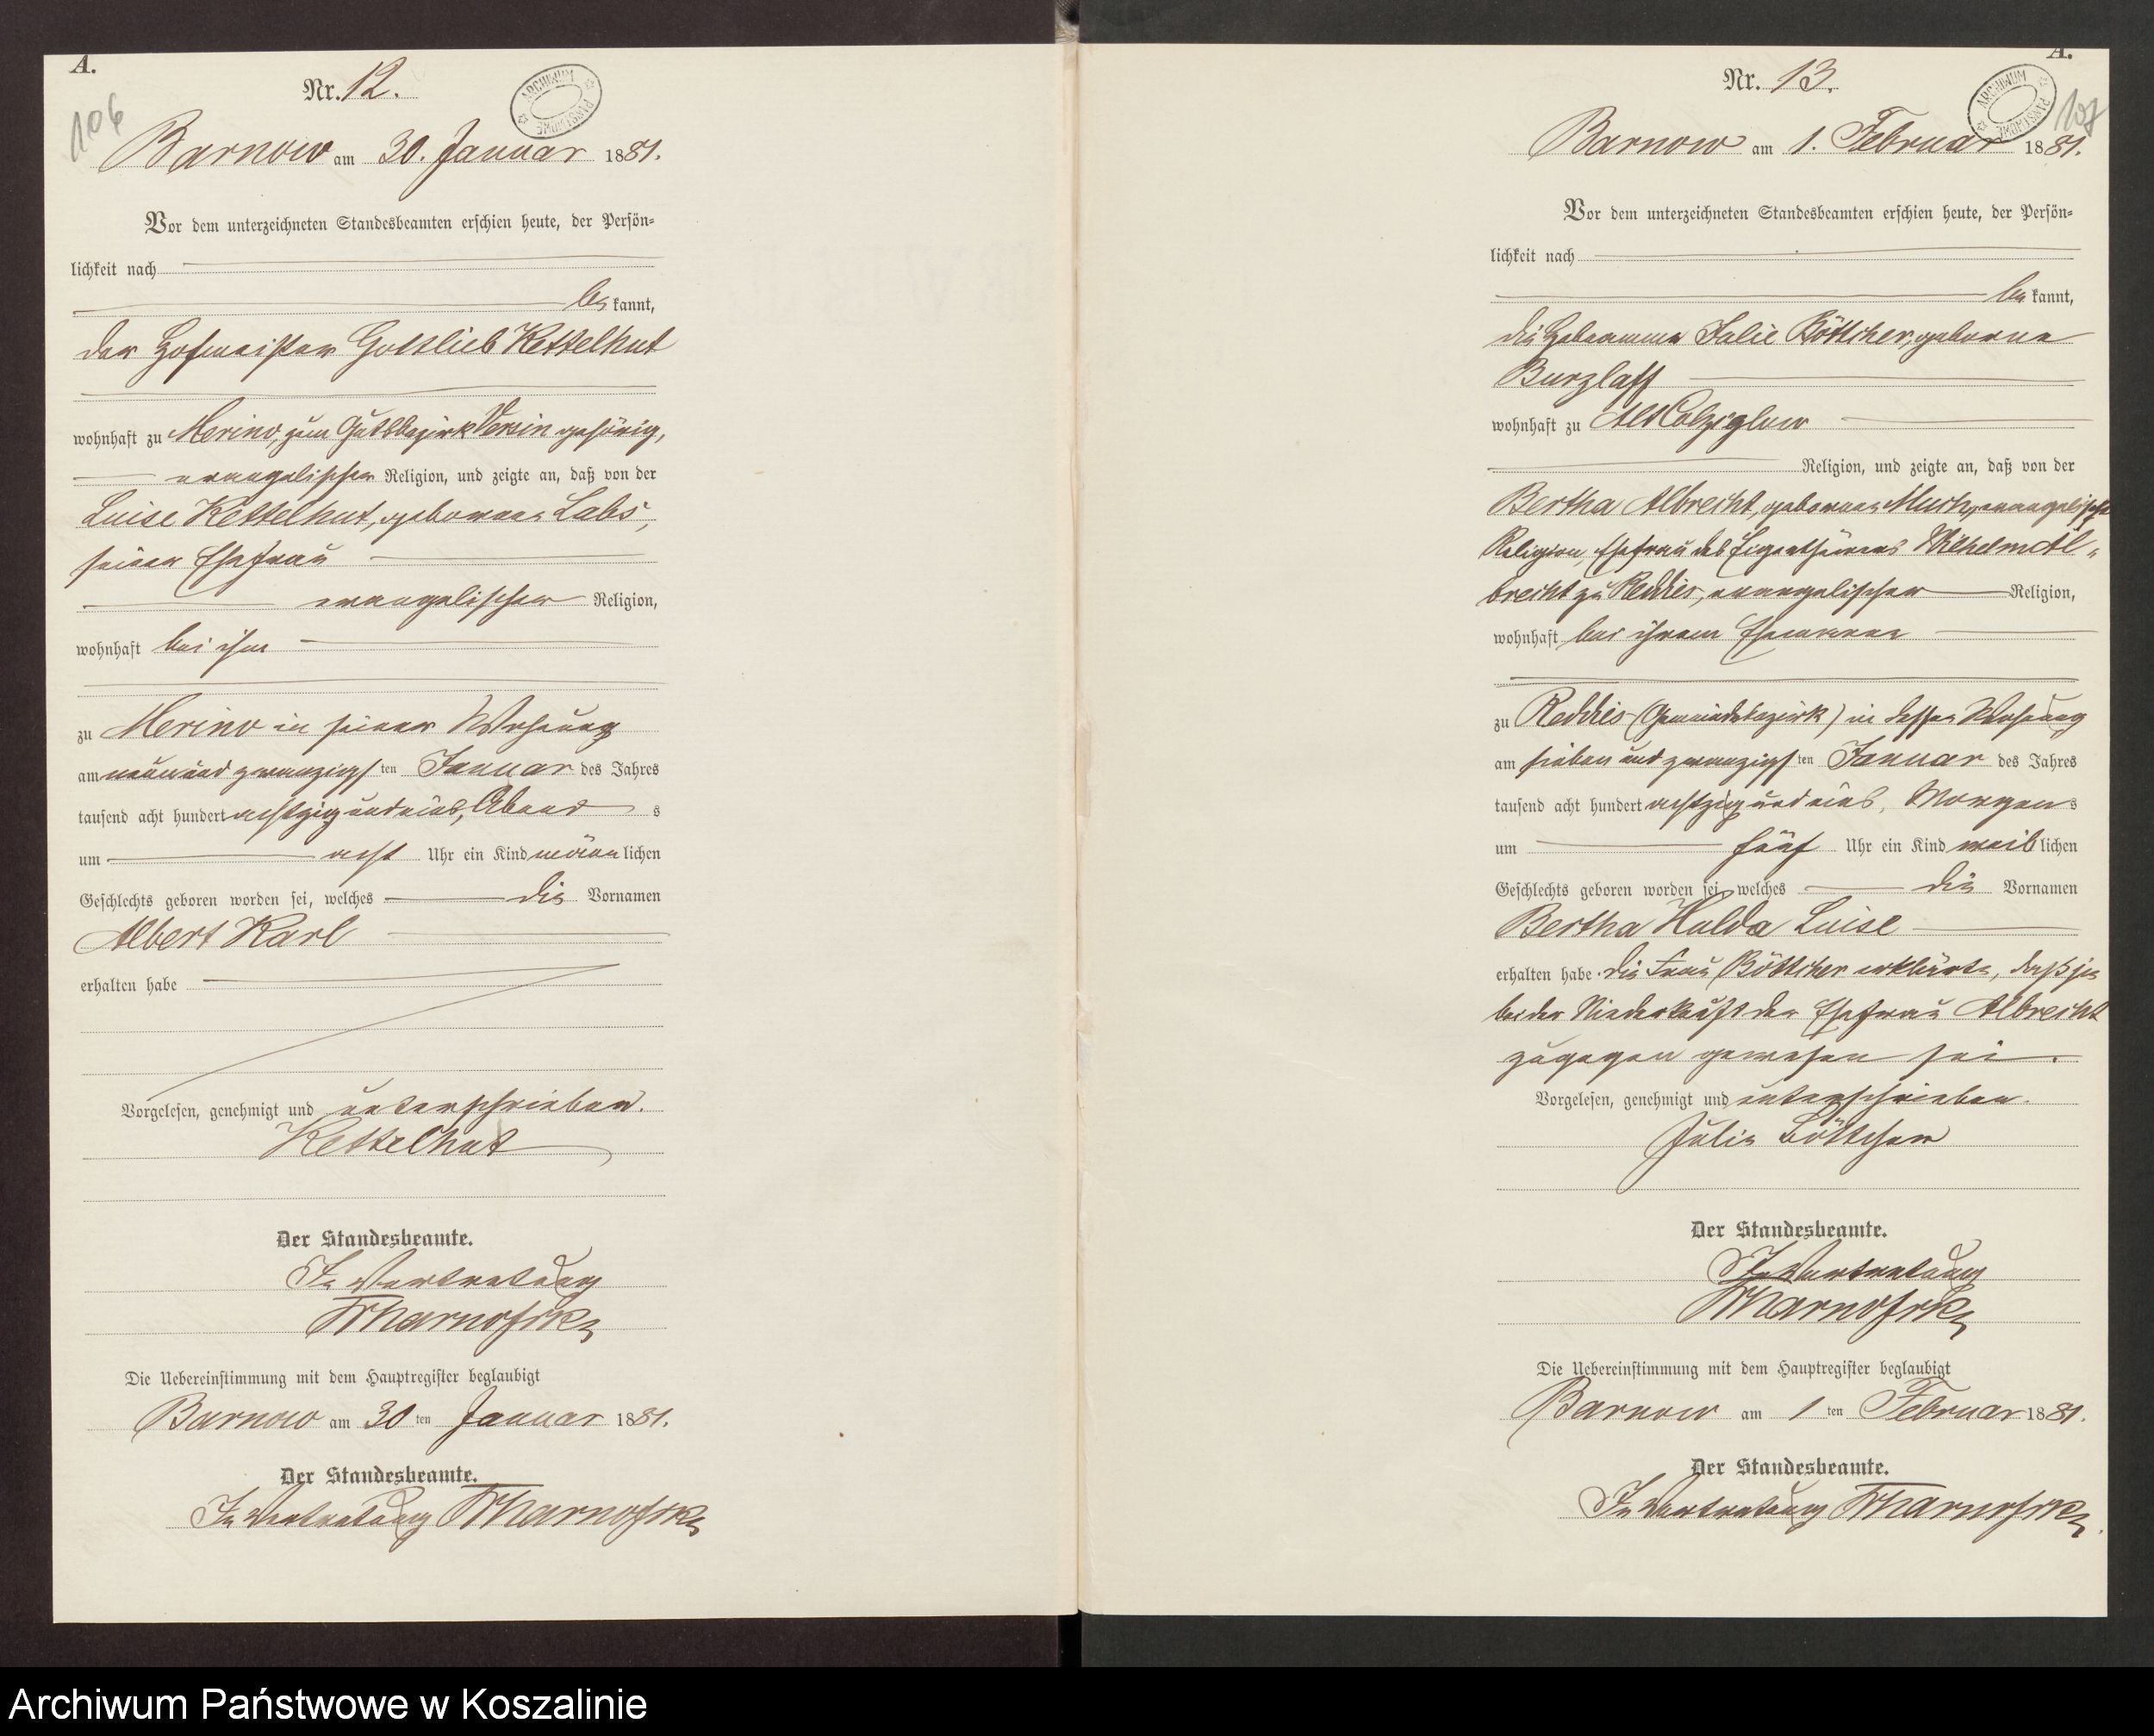 A.
Nr. 12.
106
ARCHIWUM PAŃSTWOWE
Barnow am 30. Januar 1881.
Vor dem unterzeichneten Standesbeamten erschien heute, der Persön=
lichkeit nach
be kannt,
der Hofmeister Gottlieb Kettelhut
wohnhaft zu Merino, zum Gutsbezirk Versin gehörig,
evangelischer Religion, und zeigte an, daß von der
Luise Kettelhut, geborenen Labs,
seiner Ehefrau
evangelischer Religion,
wohnhaft bei ihm
zu Merino in seiner Wohnung
am neun und zwanzigsten Januar des Jahres
tausend acht hundert achtzig und eins, Abends
um acht Uhr ein Kind männlichen
Geschlechts geboren worden sei, welches die Vornamen
Albert Karl
erhalten habe
Vorgelesen, genehmigt und unterschrieben.
Kettelhut
Der Standesbeamte.
In Vertretung
Die Uebereinstimmung mit dem Hauptregister beglaubigt
Barnow am 30ten Januar 1881.
Der Standesbeamte.
In Vertretung
A.
Nr. 13.
107
ARCHIWUM PAŃSTWOWE
Barnow am 1. Februar 1881.
Vor dem unterzeichneten Standesbeamten erschien heute, der Persön=
lichkeit nach
be kannt,
die Hebeamme Julie Böttcher, geborne
Burzlaff
wohnhaft zu Alt Colziglow
Religion, und zeigte an, daß von der
Bertha Albrecht, geborenen Much, evangelischer
Religion, Ehefrau des Eigenthümers Wilhelm Al=
brecht zu Reddies, evangelischer Religion,
wohnhaft bei ihrem Ehemanne
zu Reddies (Gemeindebezirk) in dessen Wohnung
am sieben und zwanzigsten Januar des Jahres
tausend acht hundert achtzig und eins, Morgens
um fünf Uhr ein Kind weiblichen
Geschlechts geboren worden sei, welches die Vornamen
Bertha Hulda Luise
erhalten habe. Die Frau Böttcher erklärte, daß sie
bei der Niederkunft der Ehefrau Albrecht
zugegen gewesen sei.
Vorgelesen, genehmigt und unterschrieben.
Julie Böttcher
Der Standesbeamte.
In Vertretung
Die Uebereinstimmung mit dem Hauptregister beglaubigt
Barnow am 1ten Februar 1881.
Der Standesbeamte.
In Vertretung
Archiwum Państwowe w Koszalinie